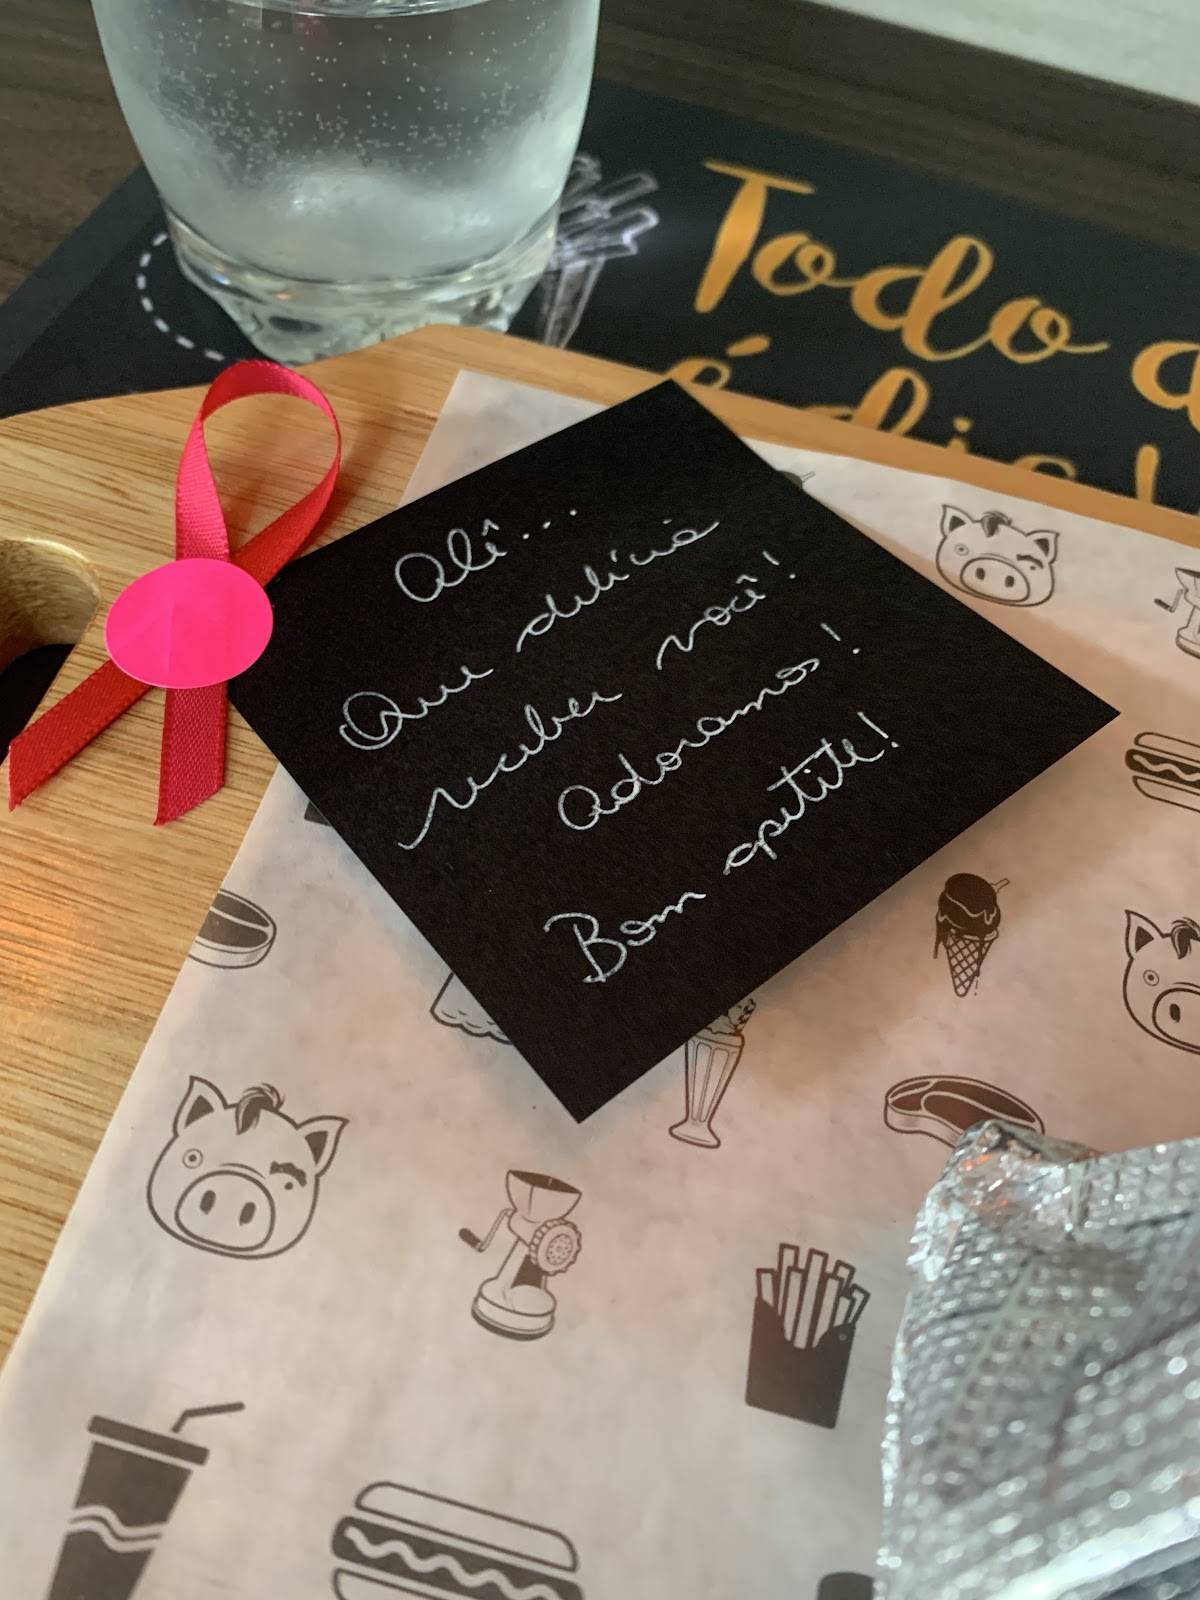 Todo d
é dia!
Alê...
Que delícia
receber você!
Adoramos!
Bom apetite!